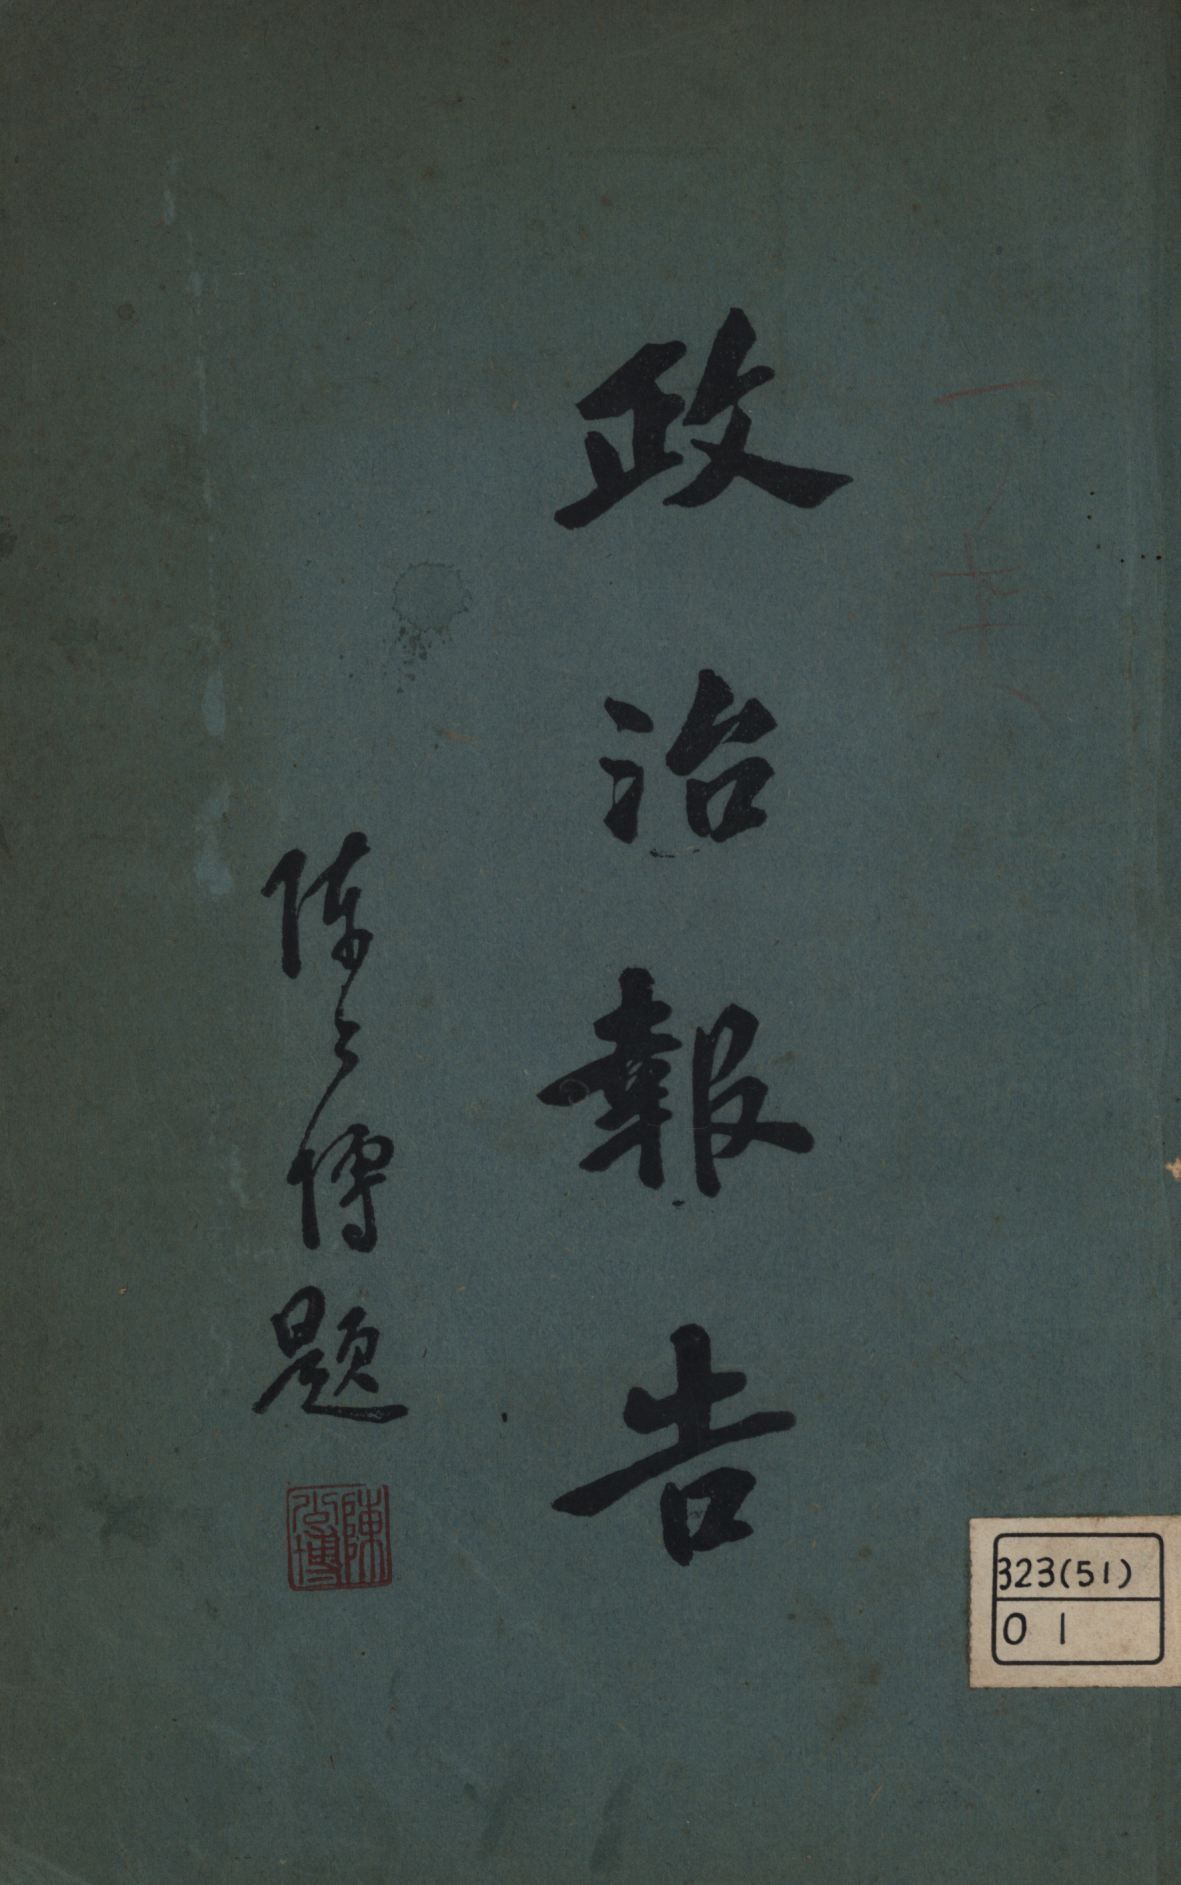 政治報告
陳公博題
陳公博
323(51)
01